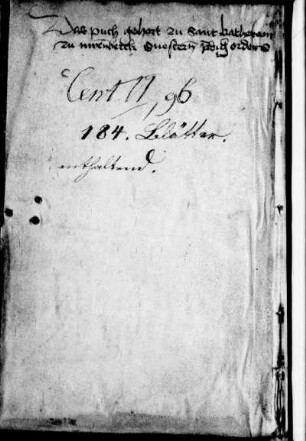 Das puch gehort zu Sant katherein
zu nurenberck Swestern ordens
Cent VI, 96
184. Blätter.
enthaltend.